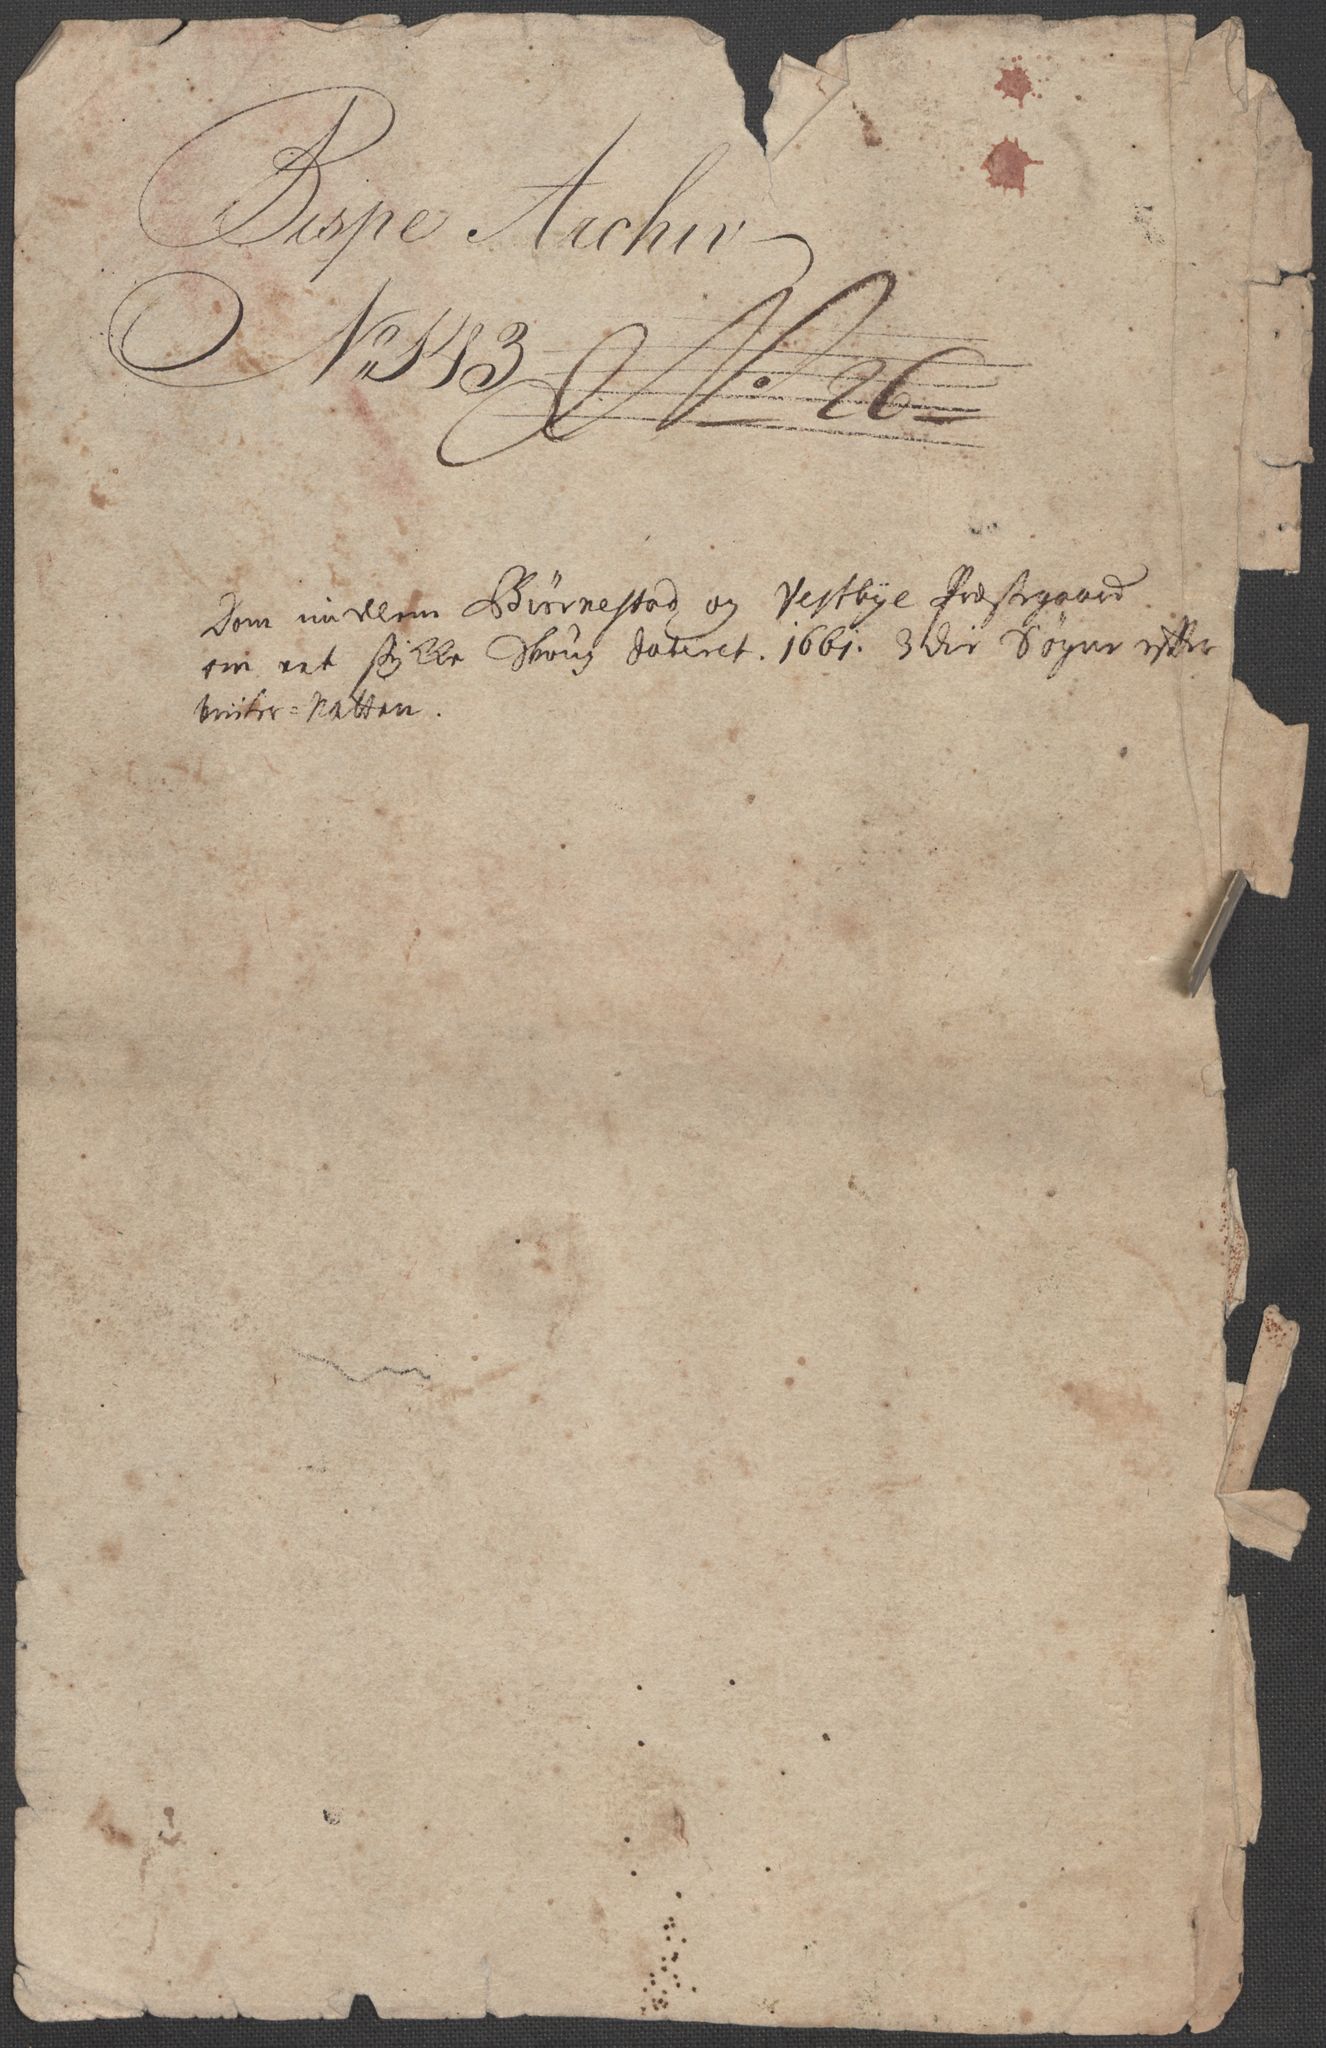 Bispe Archiv
No 143 No. 26
Dom imellem Biörnestad og Vestbye Præstegaard
om eet støkke Skoug dateret. 1661. 3die Søgne efter
vinter=Natten.